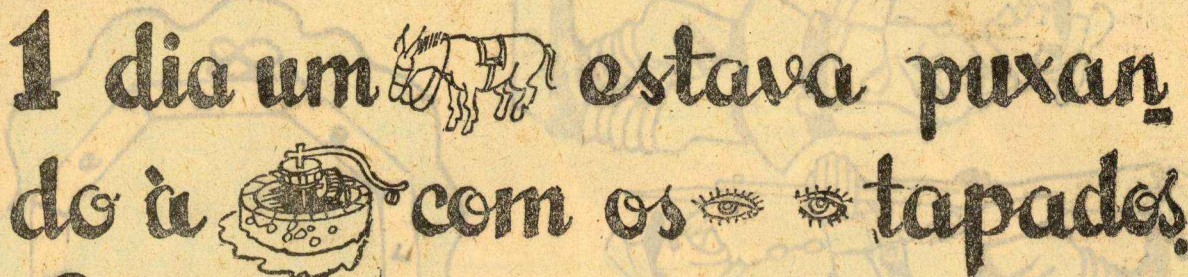 1 dia um estava puxan
do à com os tapados.